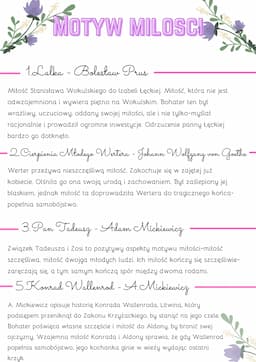 MOTYW MIŁOŚCI
1. Lalka - Bolesław Prus
Miłość Stanisława Wokulskiego do Izabeli Łęckiej. Miłość, która nie jest
odwzajemniona i wywiera piętno na Wokulskim. Bohater ten był
wrażliwy, uczuciowy, oddany swojej miłości, ale i nie tylko-myślał
racjonalnie i prowadził ogromne inwestycje. Odrzucenie panny Łęckiej
bardzo go dotknęło.
2. Cierpienia Młodego Wertera - Johann Wolfgang von Goethe
Werter przeżywa nieszczęśliwą miłość. Zakochuje się w zajętej już
kobiecie. Olśniła go ona swoją urodą i zachowaniem. Był zaślepiony jej
blaskiem, jednak miłość ta doprowadziła Wertera do tragicznego końca-
popełnia samobójstwo.
3. Pan Tadeusz - Adam Mickiewicz
Związek Tadeusza i Zosi to pozytywny aspekty motywu miłości-miłość
szczęśliwa, miłość dwojga młodych ludzi. Ich miłość kończy się szczęśliwie-
zaręczają się, a tym samym kończą spór między dwoma rodami.
5. Konrad Wallenrod - A. Mickiewicz
A. Mickiewicz opisuje historię Konrada Wallenroda, Litwina, który
podstępem przeniknął do Zakonu Krzyżackiego, by stanąć na jego czele.
Bohater poświęca własne szczęście i miłość do Aldony, by bronić swej
ojczyzny. Wzajemna miłość Konrada i Aldony sprawia, że gdy Wallenrod
popełnia samobójstwo, jego kochanka ginie w wieży wydając ostatni
krzyk.